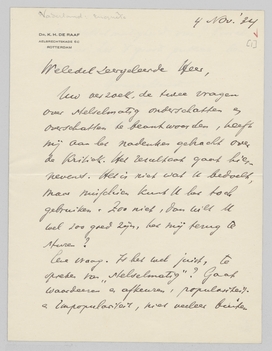 DR. K. H. DE RAAF
ROTTERDAM
4 Nov. '24
[1]
Weledel Zeergeleerde Heer,
Uw verzoek, de twee vragen
over Stelselmatig onderschatten en
overschatten te beantwoorden, heeft
mij aan het nadenken gebracht over
de kritiek. Het resultaat gaat hier-
nevens. Als is niet wat U bedoelt,
maar misschien kunt U het toch
gebruiken. Zoo niet, dan wilt U
wel zoo goed zijn, het mij terug te
sturen?
Eene vraag. Is het wel juist, te
spreken van "Stelselmatig"? Gaat
waardeeren en afkeuren, populariteit
en impopulariteit, niet veeleer buiten